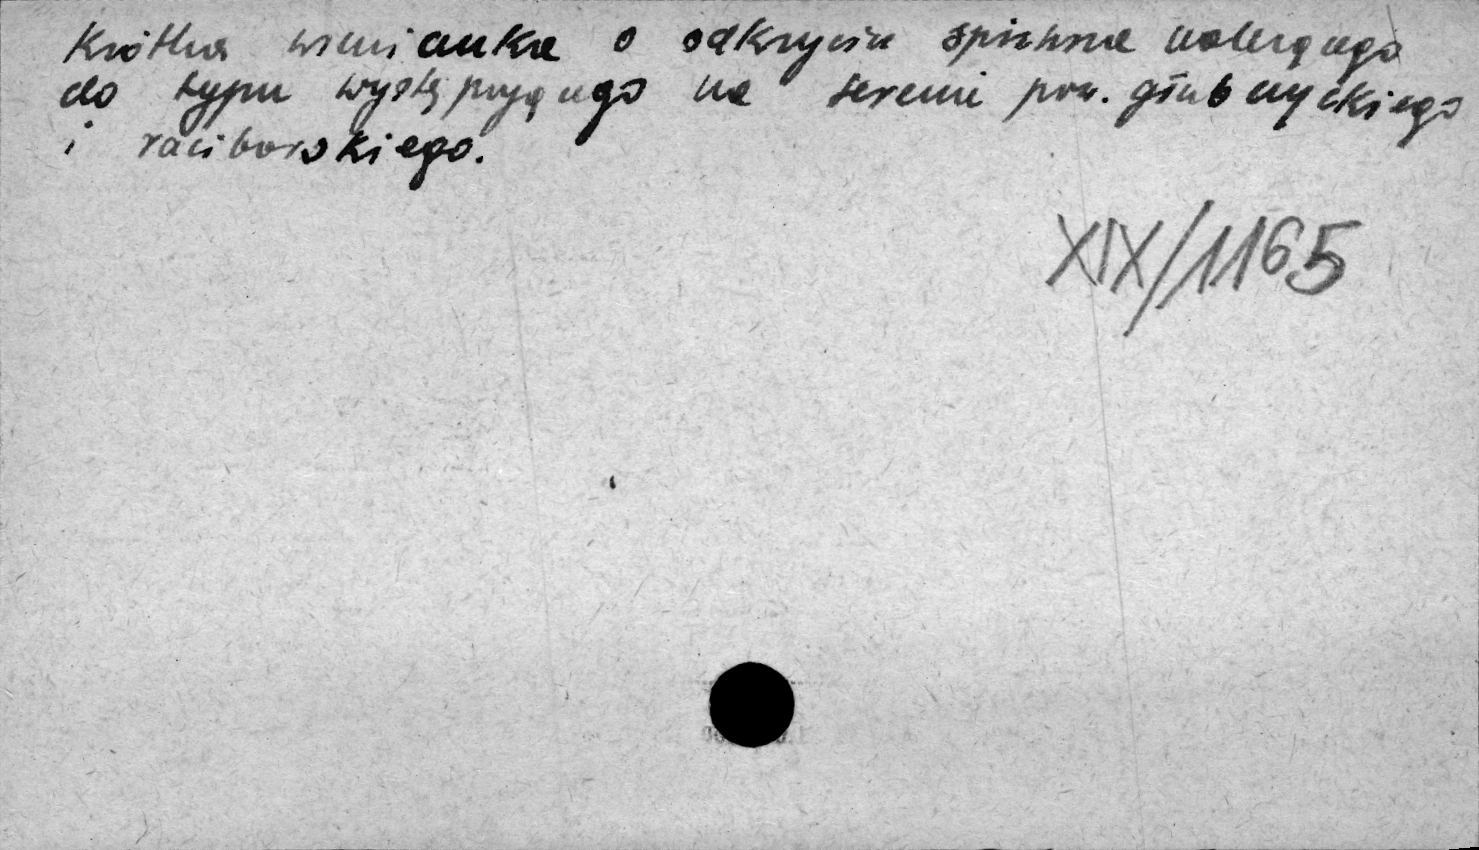 Krótka wzmianka o odkryciu śpichrza należącego
do typu występującego na terenie pow. głubczyckiego
i raciborskiego.
XIX/1165